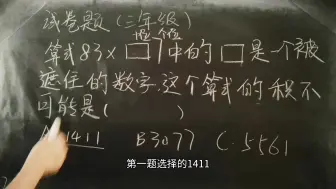 试卷题(三年级)
算式83×□1中的□是一个被
遮住的数字,这个算式的积不
可能是( )
1411 B3077 C.5561
第一题选择的1411